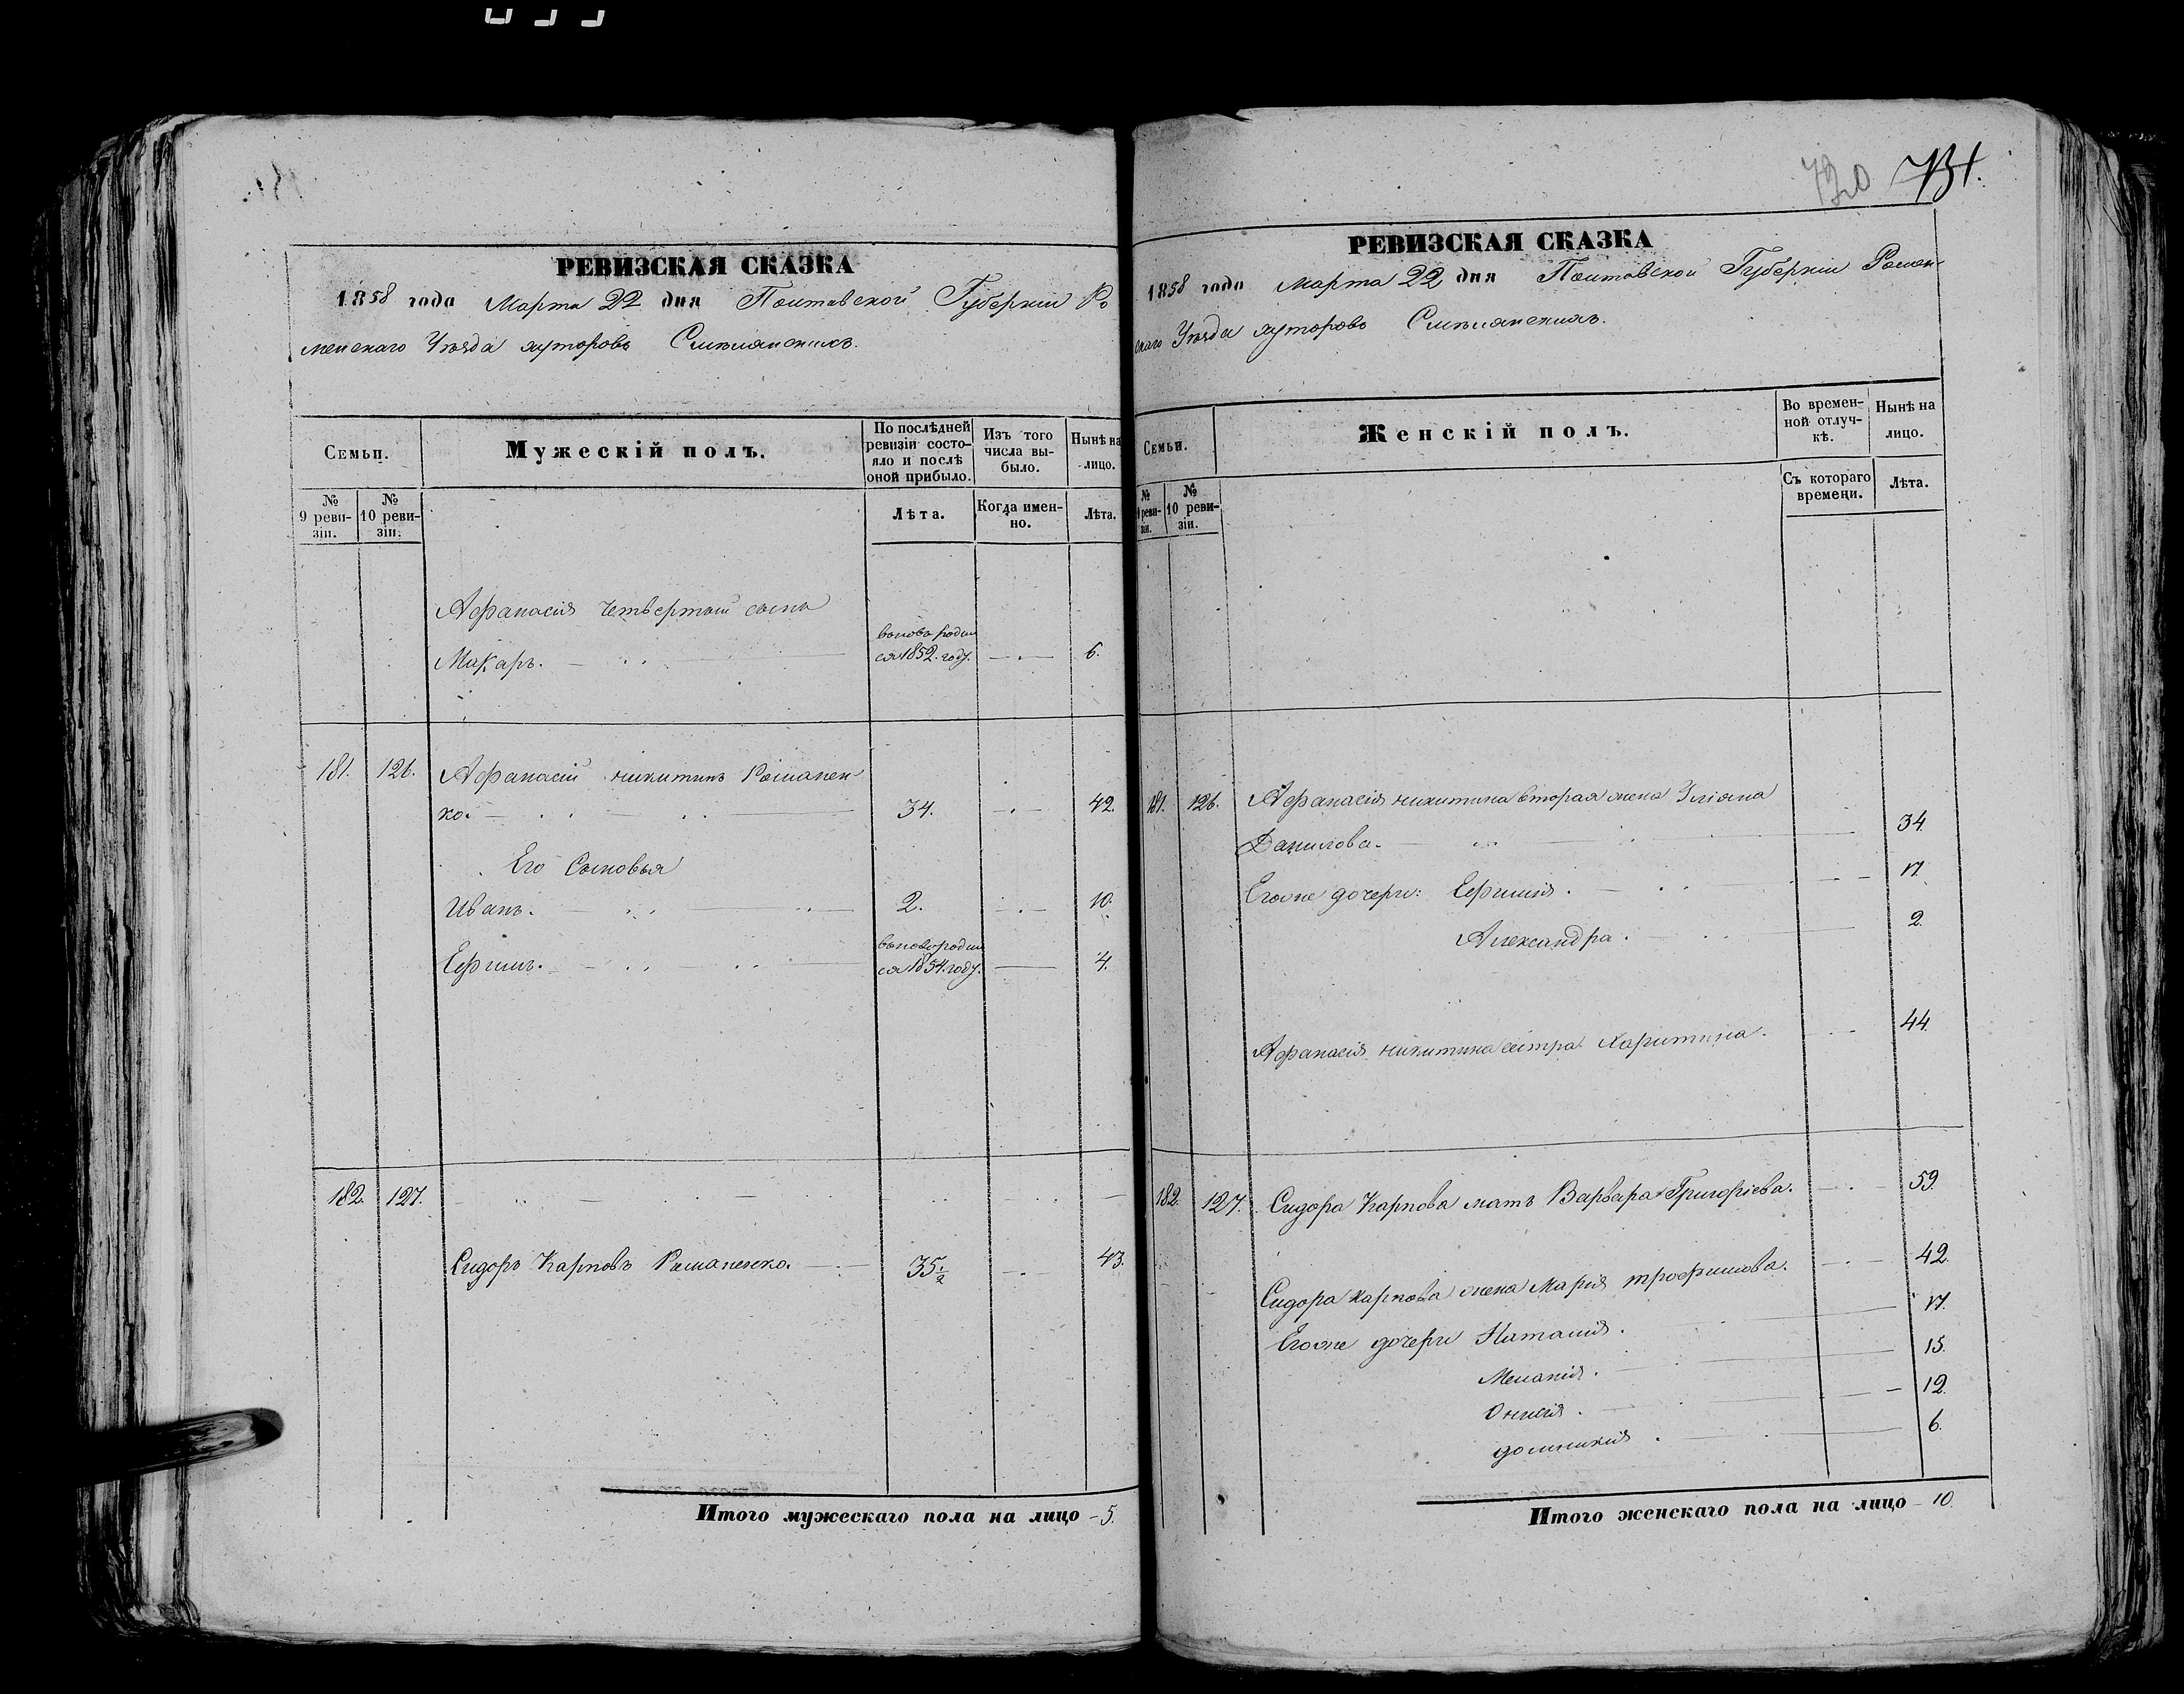 РЕВИЗСКАЯ СКАЗКА
1858 года Марта 22 дня Полтавской Губерніи Ро
менскаго Уѣзда хуторовъ
Семьи.
Мужескій полъ.
По послѣдней ревизіи состояло и послѣ оной прибыло.
Изъ того числа выбыло.
Нынѣ на лицо.
№ 9 ревизіи.
№ 10 ревизіи.
Лѣта.
Когда именно.
Лѣта.
Афанасія четвертый сынъ
Макаръ. вновь родился 1852. году. 6.
181. 126. Афанасій никитинъ Романен-
ко. 34. 42.
Его Сыновья
Иванъ. 2. 10.
Ефимъ. вновь родился 1854. году. 4.
182. 127.
Сидоръ Карповъ Романенко. 35 1/2 43.
Итого мужескаго пола на лицо - 5.
720 731.
РЕВИЗСКАЯ СКАЗКА
1858 года Марта 22 дня Полтавской Губерніи Ромен-
скаго Уѣзда хуторовъ
Семьи.
Женскій полъ.
Во временной отлучкѣ.
Нынѣ на лицо.
№ 9 ревизіи.
№ 10 ревизіи.
Съ котораго времени.
Лѣта.
181. 126. Афанасія никитина вторая жена
Данилова. 34.
Егоже дочери: Ефимія. 17.
Александра. 2.
Афанасія никитина сестра Харитина. 44.
182. 127. Сидора Карпова мать Варвара Григоріева. 59.
Сидора карпова жена Марія трофимова. 42.
Егоже дочери Наталія. 17.
Меланія. 15.
Онисія. 12.
домникія. 6.
Итого женскаго пола на лицо - 10.